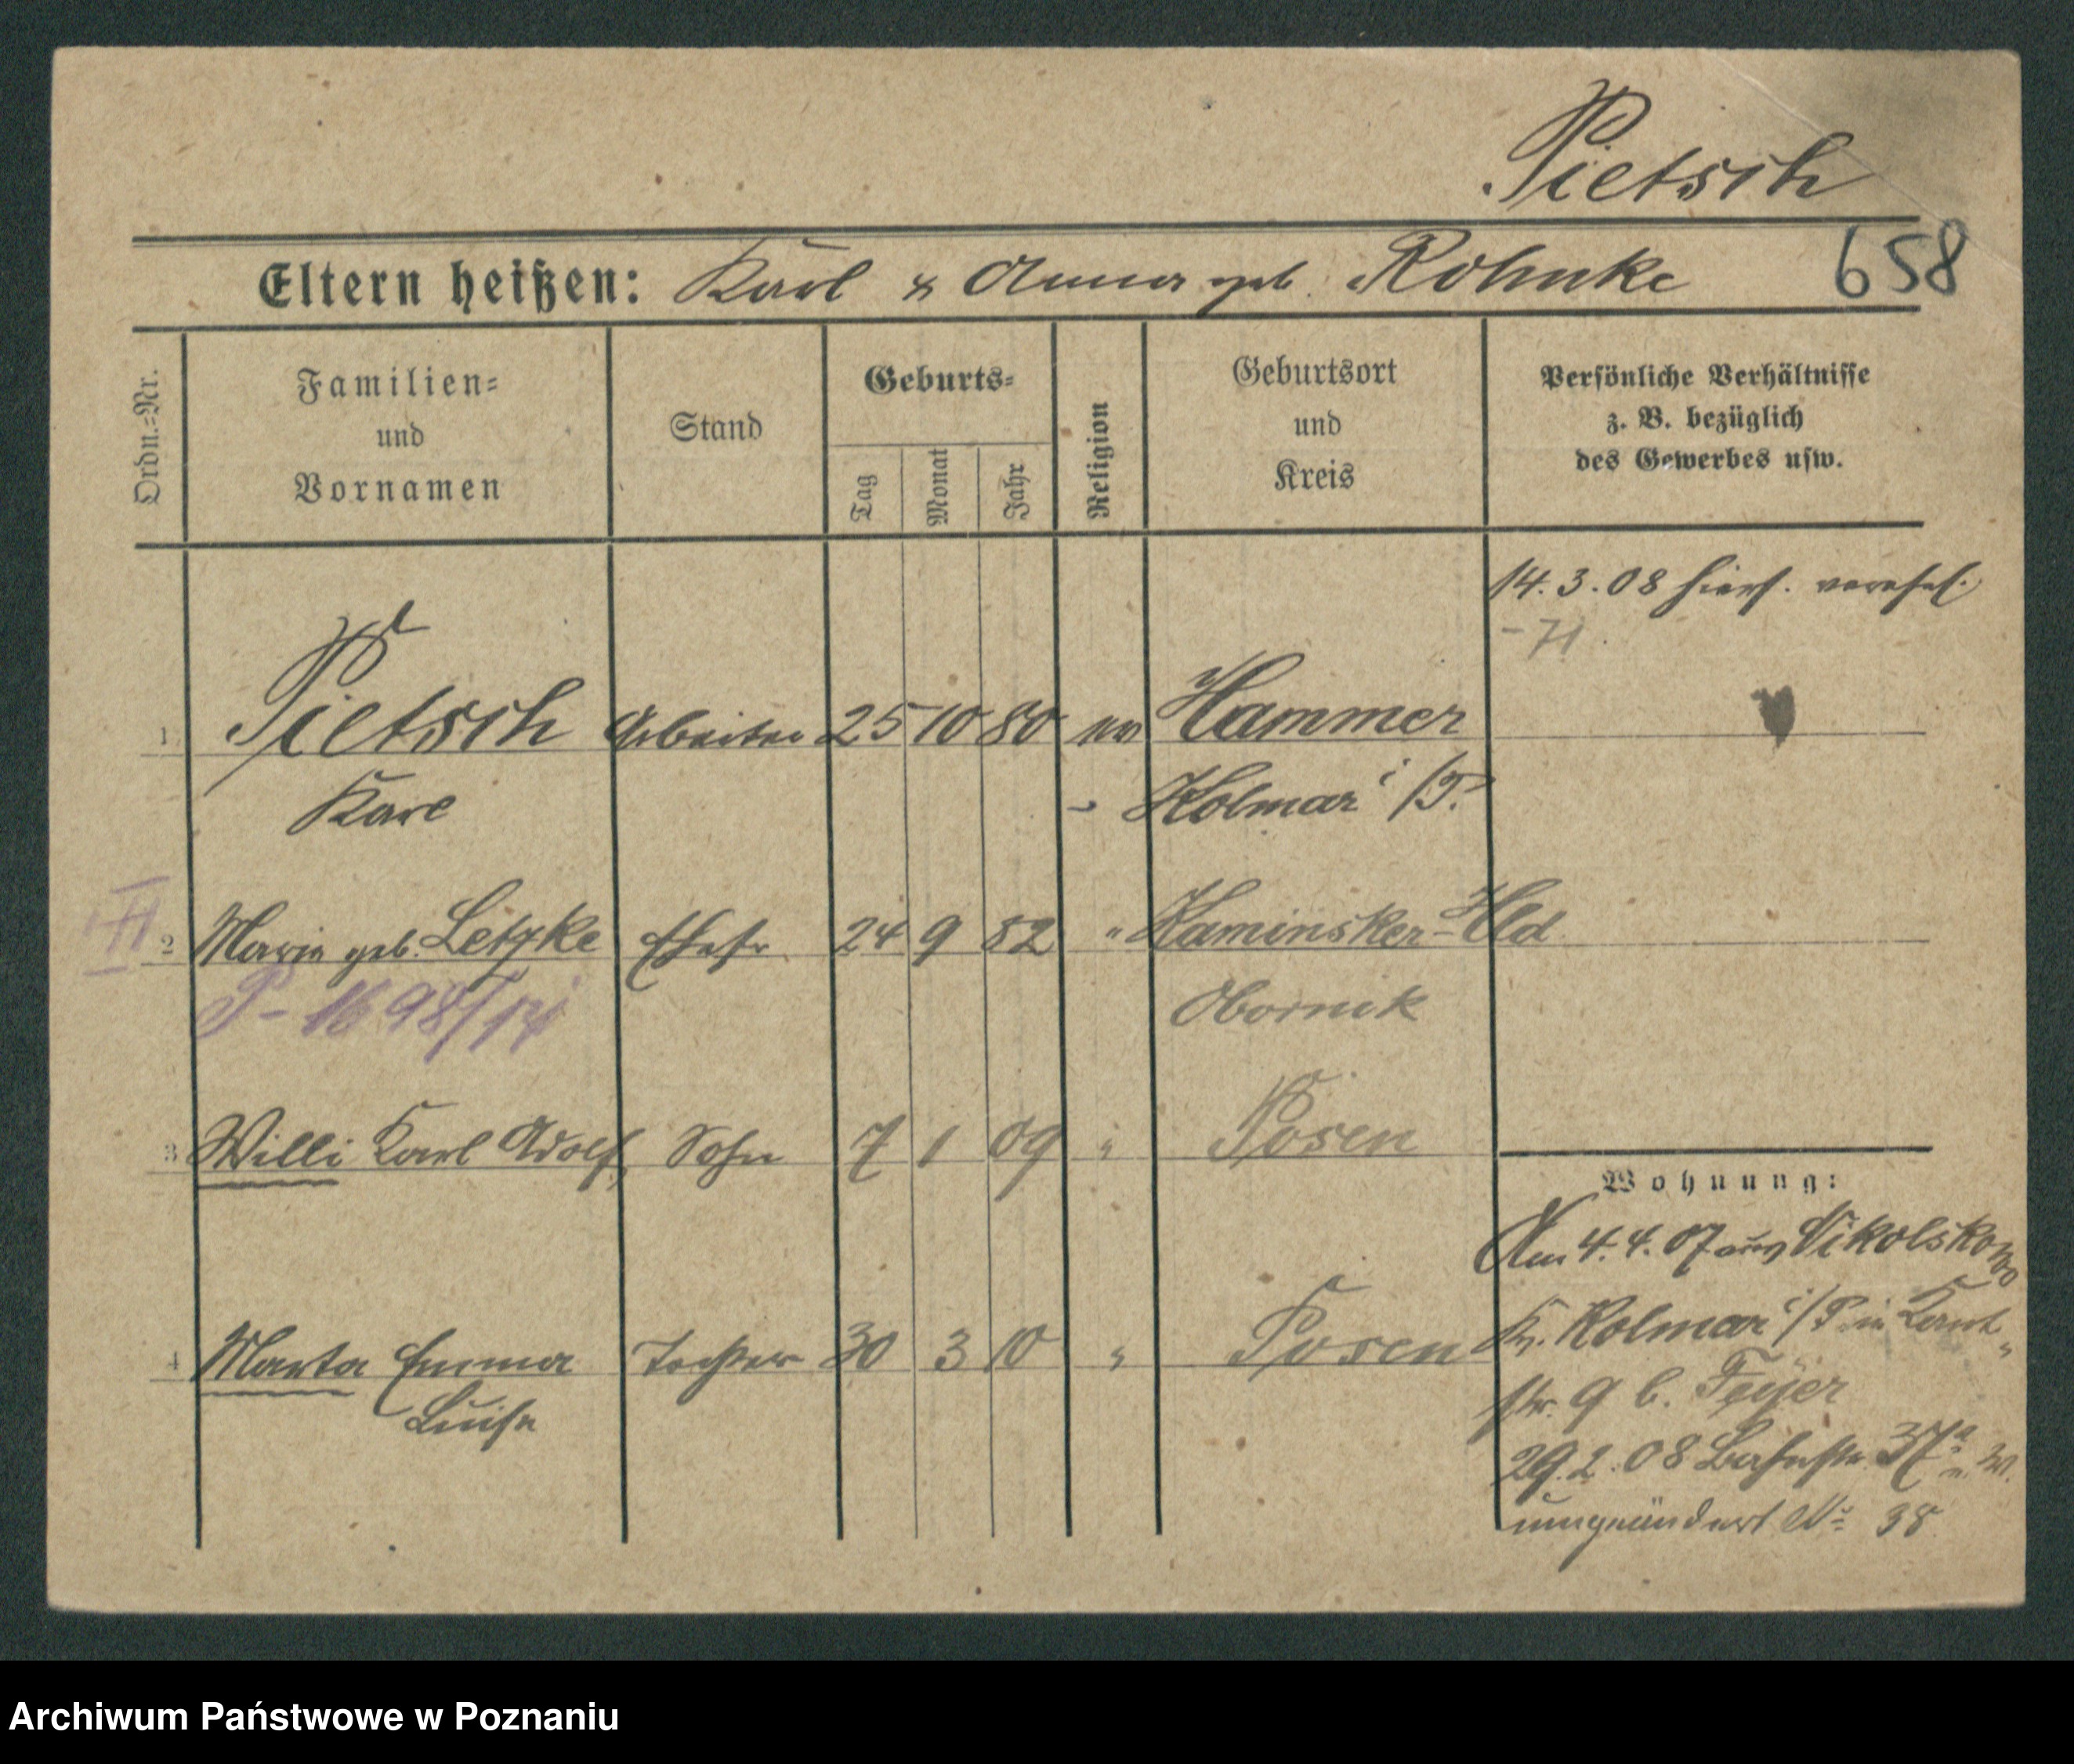 Pietsch
658
Eltern heißen: Karl & Anna geb. Rohnke
Ordn.=Nr.
Familien=
und
Vornamen
Stand
Geburts=
Tag
Monat
Jahr
Religion
Geburtsort
und
Kreis
Persönliche Verhältnisse
z. B. bezüglich
des Gewerbes usw.
14. 3. 08 hiers. verehel.
1 Pietsch Arbeiter 25 10 80 ev Hammer
Karl Kolmar i/P.
2 Marie geb. Letzke Ehefr. 24 9 82 " Kaminsker-Hld
Obornik
3 Willi Karl Adolf, Sohn 7 1 09 " Posen
4 Marta Emma Tochter 30 3 10 " Posen
Luise
Wohnung:
Am 4. 4. 07 aus Nikolskowo
Kr. Kolmar i/P in
str. 9 b. Feyer
29. 2. 08 37a
umgeändert No 38
Archiwum Państwowe w Poznaniu